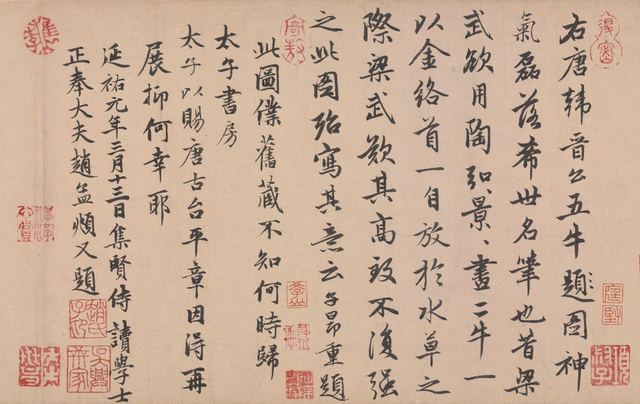 右唐韓晉公五牛題圖神
氣磊落希世名筆也昔梁
武欲用陶弘景、畫二牛一
以金絡首一自放於水草之
際梁武歎其高致不復強
之此圖殆寫其意云子昂重題
此圖僕舊藏不知何時歸
太子書房
太子以賜唐古台平章因得再
展抑何幸耶
延祐元年三月十三日集賢侍讀學士
正奉大夫趙孟頫又題